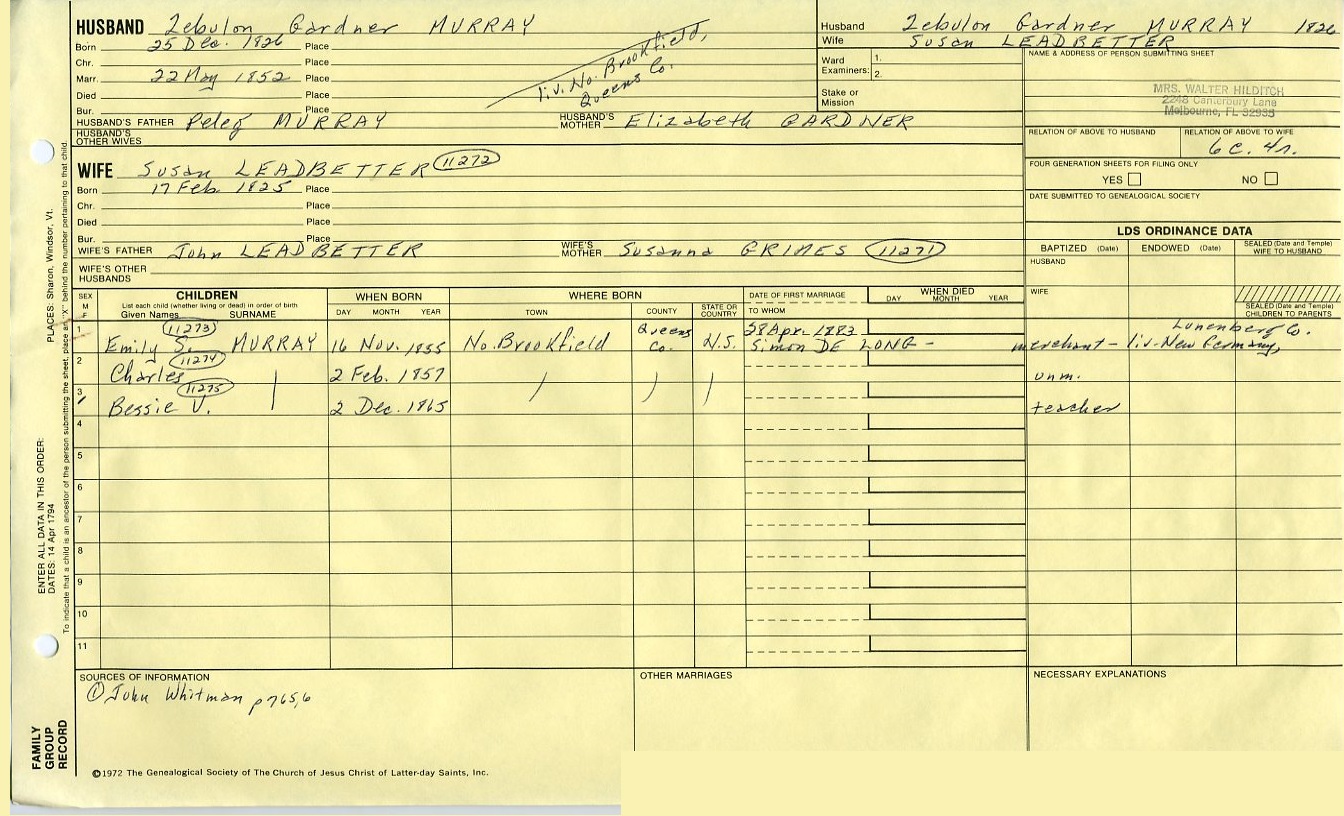 HUSBAND Zebulon Gardner MURRAY
Born 25 Dec. 1826 Place
Chr. Place
Marr. 22 May 1852 Place
Died Place
Bur. Place
liv. No. Brookfield,
Queens Co.
HUSBAND'S FATHER Peleg MURRAY HUSBAND'S MOTHER Elizabeth GARDNER
HUSBAND'S OTHER WIVES
Husband Zebulon Gardner MURRAY 1826
Wife Susan LEADBETTER
Ward 1.
Examiners: 2.
Stake or
Mission
NAME & ADDRESS OF PERSON SUBMITTING SHEET
MRS. WALTER HILDITCH
2248 Canterbury Lane
Melbourne, FL 32935
RELATION OF ABOVE TO HUSBAND RELATION OF ABOVE TO WIFE
6c. 4r.
FOUR GENERATION SHEETS FOR FILING ONLY
YES NO
DATE SUBMITTED TO GENEALOGICAL SOCIETY
WIFE Susan LEADBETTER 11272
Born 17 Feb. 1825 Place
Chr. Place
Died Place
Bur. Place
WIFE'S FATHER John LEADBETTER WIFE'S MOTHER Susanna GRIMES 11271
WIFE'S OTHER HUSBANDS
LDS ORDINANCE DATA
BAPTIZED (Date) ENDOWED (Date) SEALED (Date and Temple) WIFE TO HUSBAND
HUSBAND
WIFE
SEALED (Date and Temple) CHILDREN TO PARENTS
SEX M F CHILDREN WHEN BORN WHERE BORN DATE OF FIRST MARRIAGE WHEN DIED
List each child (whether living or dead) in order of birth
Given Names SURNAME DAY MONTH YEAR TOWN COUNTY STATE OR COUNTRY TO WHOM DAY MONTH YEAR
1 11273 Queens 28 Apr. 1883 Lunenberg Co.
Emily S. MURRAY 16 Nov. 1855 No. Brookfield Co. N.S. Simon DE LONG - merchant - liv. New Germany,
2 11274
Charles 2 Feb. 1857 unm.
3 11275
Bessie V. 2 Dec. 1865 teacher
4
5
6
7
8
9
10
11
SOURCES OF INFORMATION OTHER MARRIAGES NECESSARY EXPLANATIONS
① John Whitman p 765,6
©1972 The Genealogical Society of The Church of Jesus Christ of Latter-day Saints, Inc.
FAMILY
GROUP
RECORD
ENTER ALL DATA IN THIS ORDER:
DATES: 14 Apr 1794
PLACES: Sharon, Windsor, Vt.
To indicate that a child is an ancestor of the person submitting the sheet, place an "X" behind the number pertaining to that child.